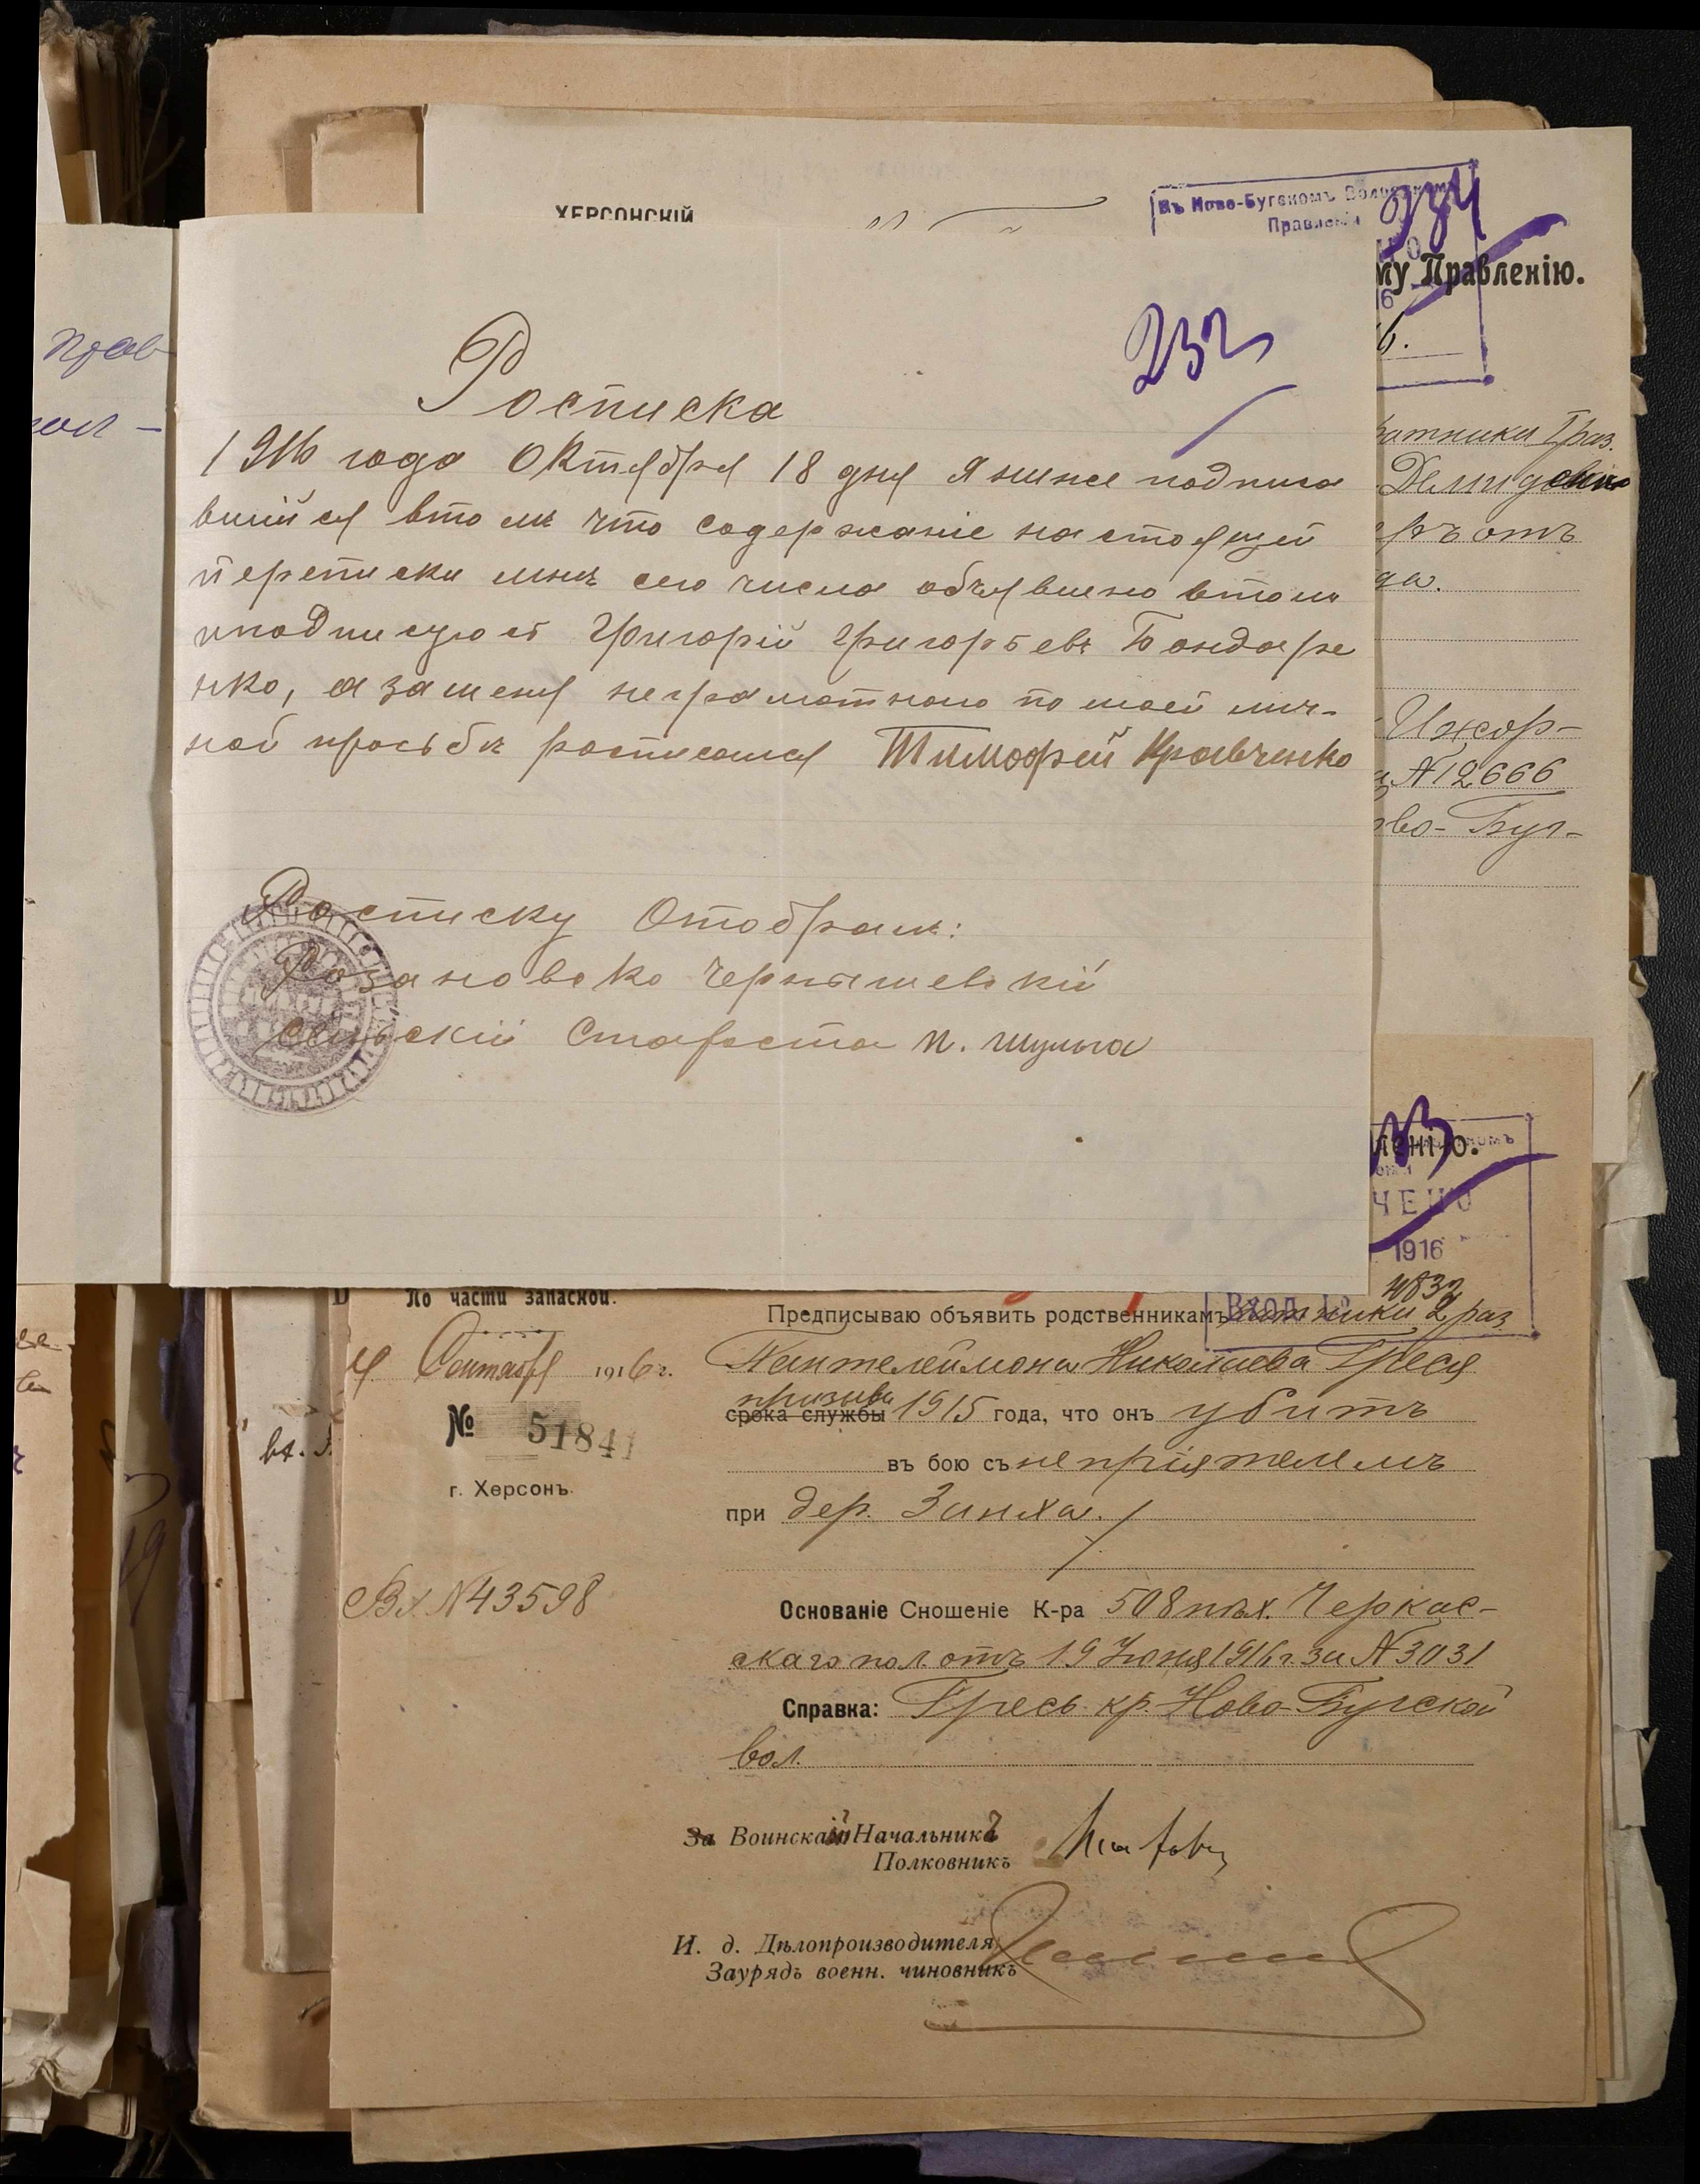 ХЕРСОНСКІЙ
Въ Ново-Бугскомъ Волостномъ
Правленіи
му Правленію.
232
Росписка
1916 года Октября 18 дня я ниже подписа
вшийся втомъ что содержаніе настоящей
переписки мнѣ сего числа объявлено втомъ
иподписуюсь Григорій Григорьевъ Бондаре
нко, а заменя неграмотного по моей лич-
ной просьбѣ росписался Тимофей Кравченко
Росписку Отобралъ:
Розановско Чернышевскій
Сельскій Староста П. Шульга
6.
ратника 1 раз.
Демиденко
ръ отъ
да.
Ижор-
№ 12666
ово-Буг-
прав
вол -
вх.
ленію.
ЧЕНО
1916
4832
ВХОД
По части запасной.
4 Сентября 1916 г.
№ 51841
г. Херсонъ.
Вх. № 43598
Предписываю объявить родственникамъ ратника 2 раз
Пантелеймона Николаева Греся
призыва
срока службы 1915 года, что онъ убитъ
въ бою съ непріятелемъ
при дер. Занха.
Основаніе Сношеніе К-ра 508 пѣх. Черкас-
скаго пол. отъ 19 Іюня 1916 г. за № 3031
Справка: Гресь кр. Ново-Бугской
вол.
За Воинскій Начальникъ
Полковникъ
И. д. Дѣлопроизводителя
Заурядъ военн. чиновникъ